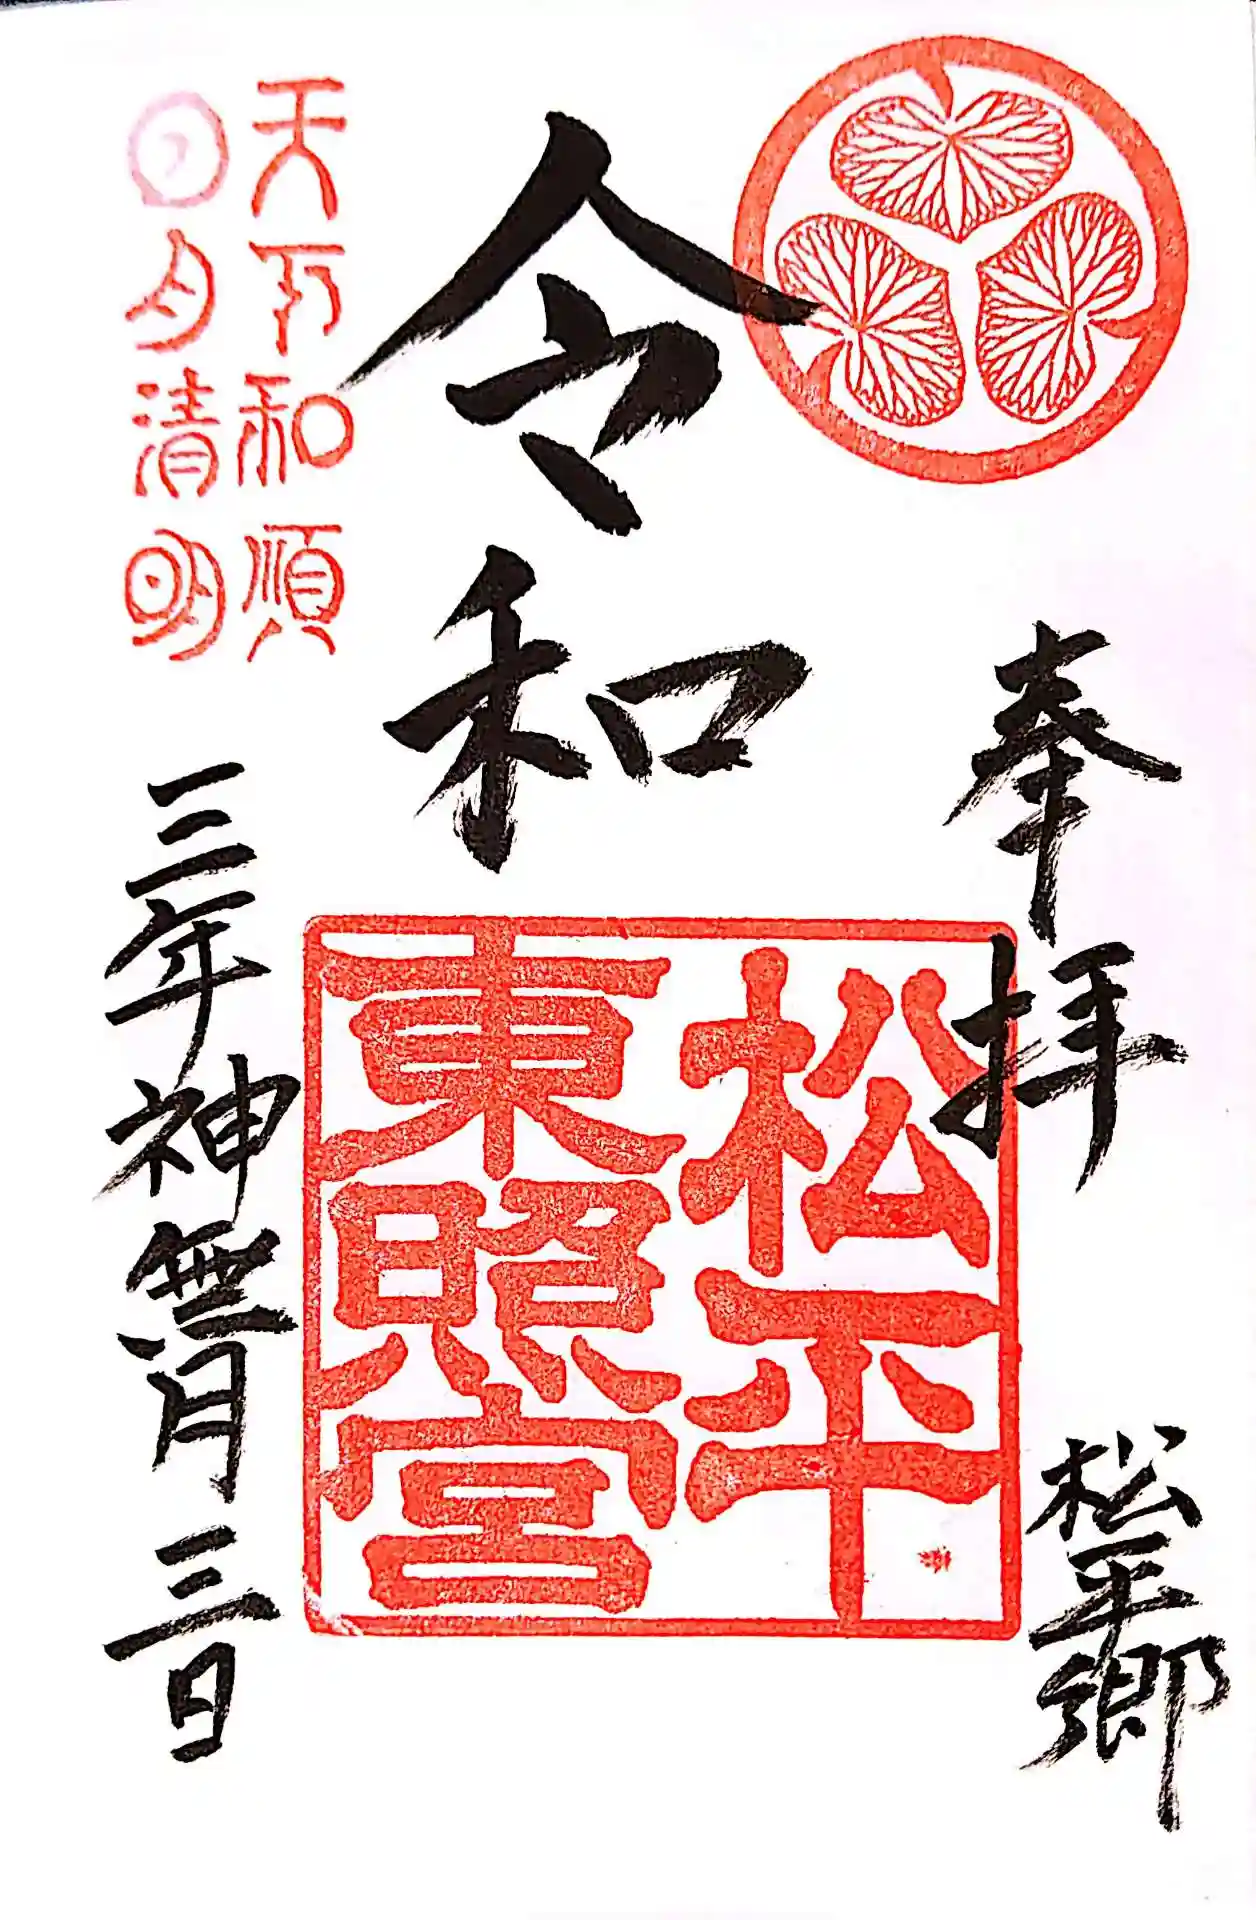 奉拝
松平郷
松平
東照宮
令和
天下和順
日月清明
三年神無月三日